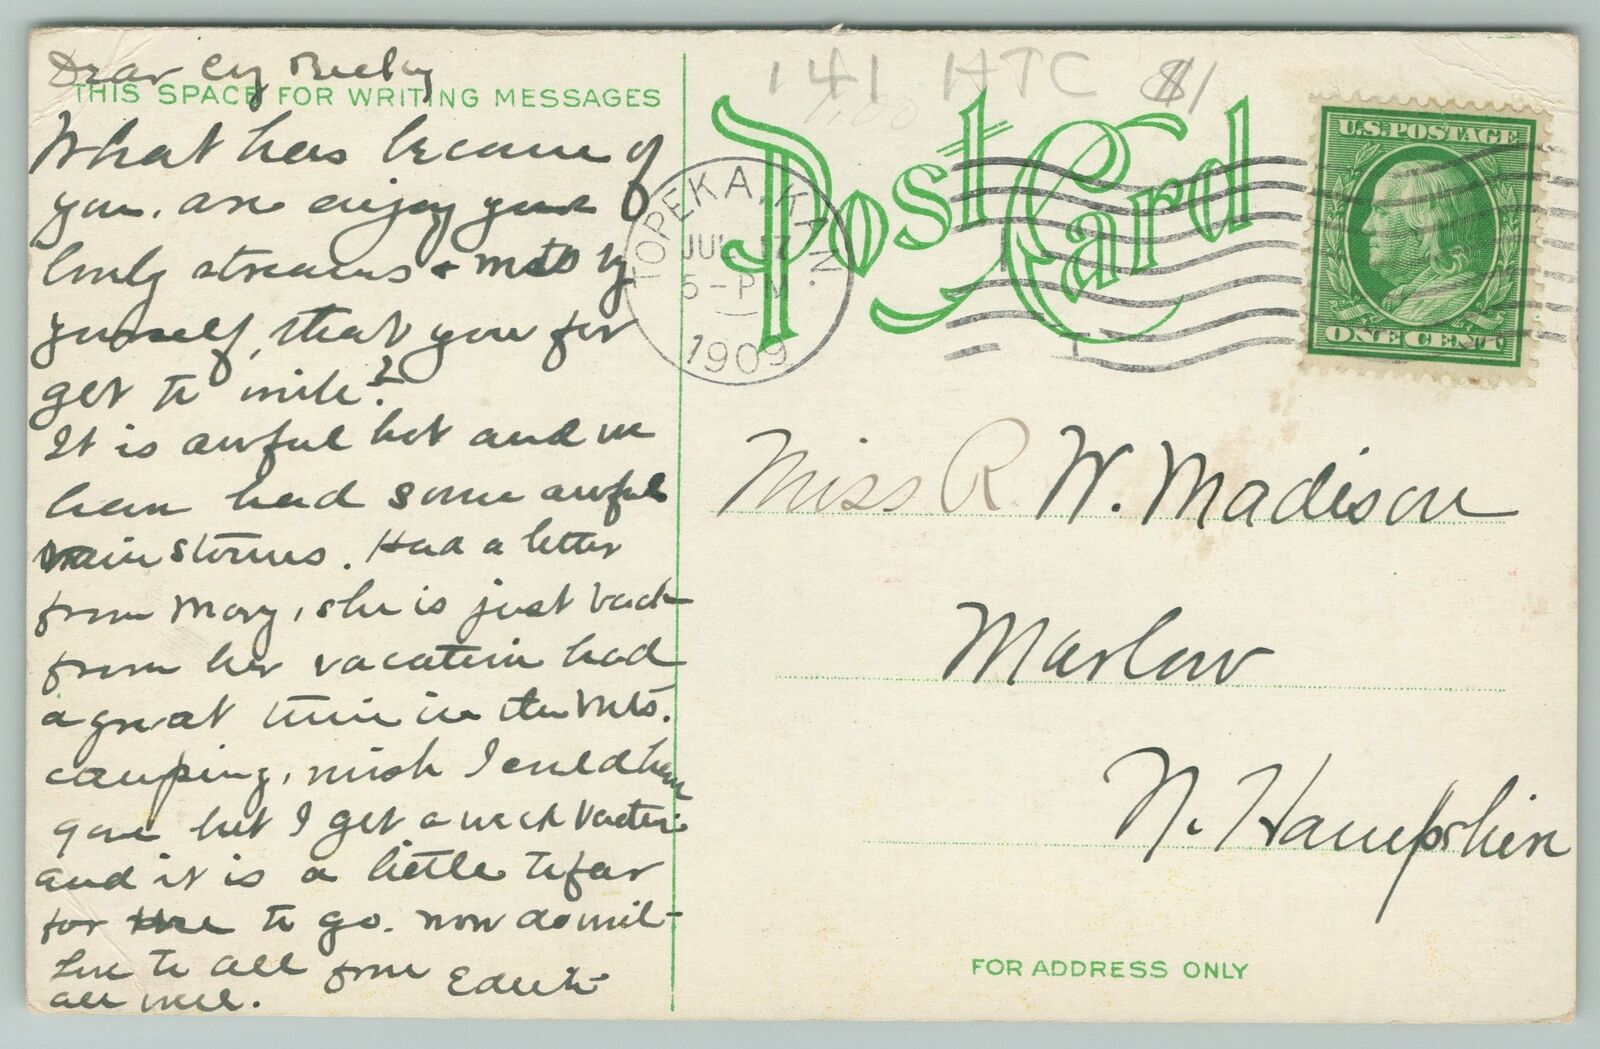 Dear Cey Becky
THIS SPACE FOR WRITING MESSAGES
What has become of
you. are enjoy your
lonly streams & mts by
yourself, that you for
get to write?
It is awful hot and we
have had some awful
rain storms. Had a letter
from Mary, she is just back
from her vacation had
a great time in the Mts.
camping, wish I could have
gone but I get a week vacation
and it is a little to far
for me to go. now do write
Love to all from Edith
all well.
141 HTC $1
1.00
Post Card
TOPEKA, KAN.
JUL 17
5-PM
1909
U.S. POSTAGE
ONE CENT
Miss R. W. Madison
Marlow
N. Hampshire
FOR ADDRESS ONLY